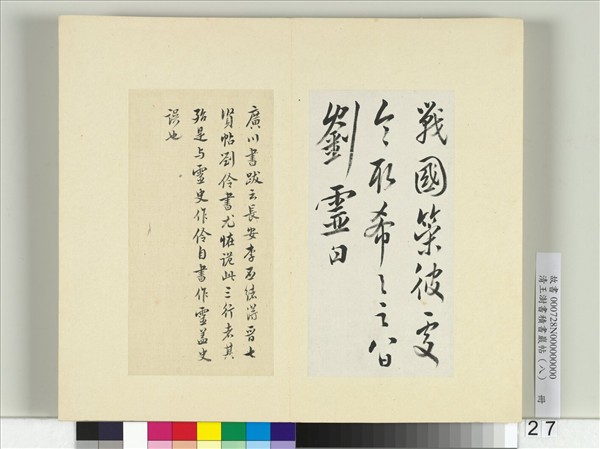 戰國策彼處
今取希
劉靈白
廣川書跋云長安李丕緒得晉七
賢帖劉伶書尤恠詭此三行者其
殆是与靈史作伶自書作靈蓋史
誤也
故書 000728N00000000
清王澍書積書巖帖(八) 冊
27